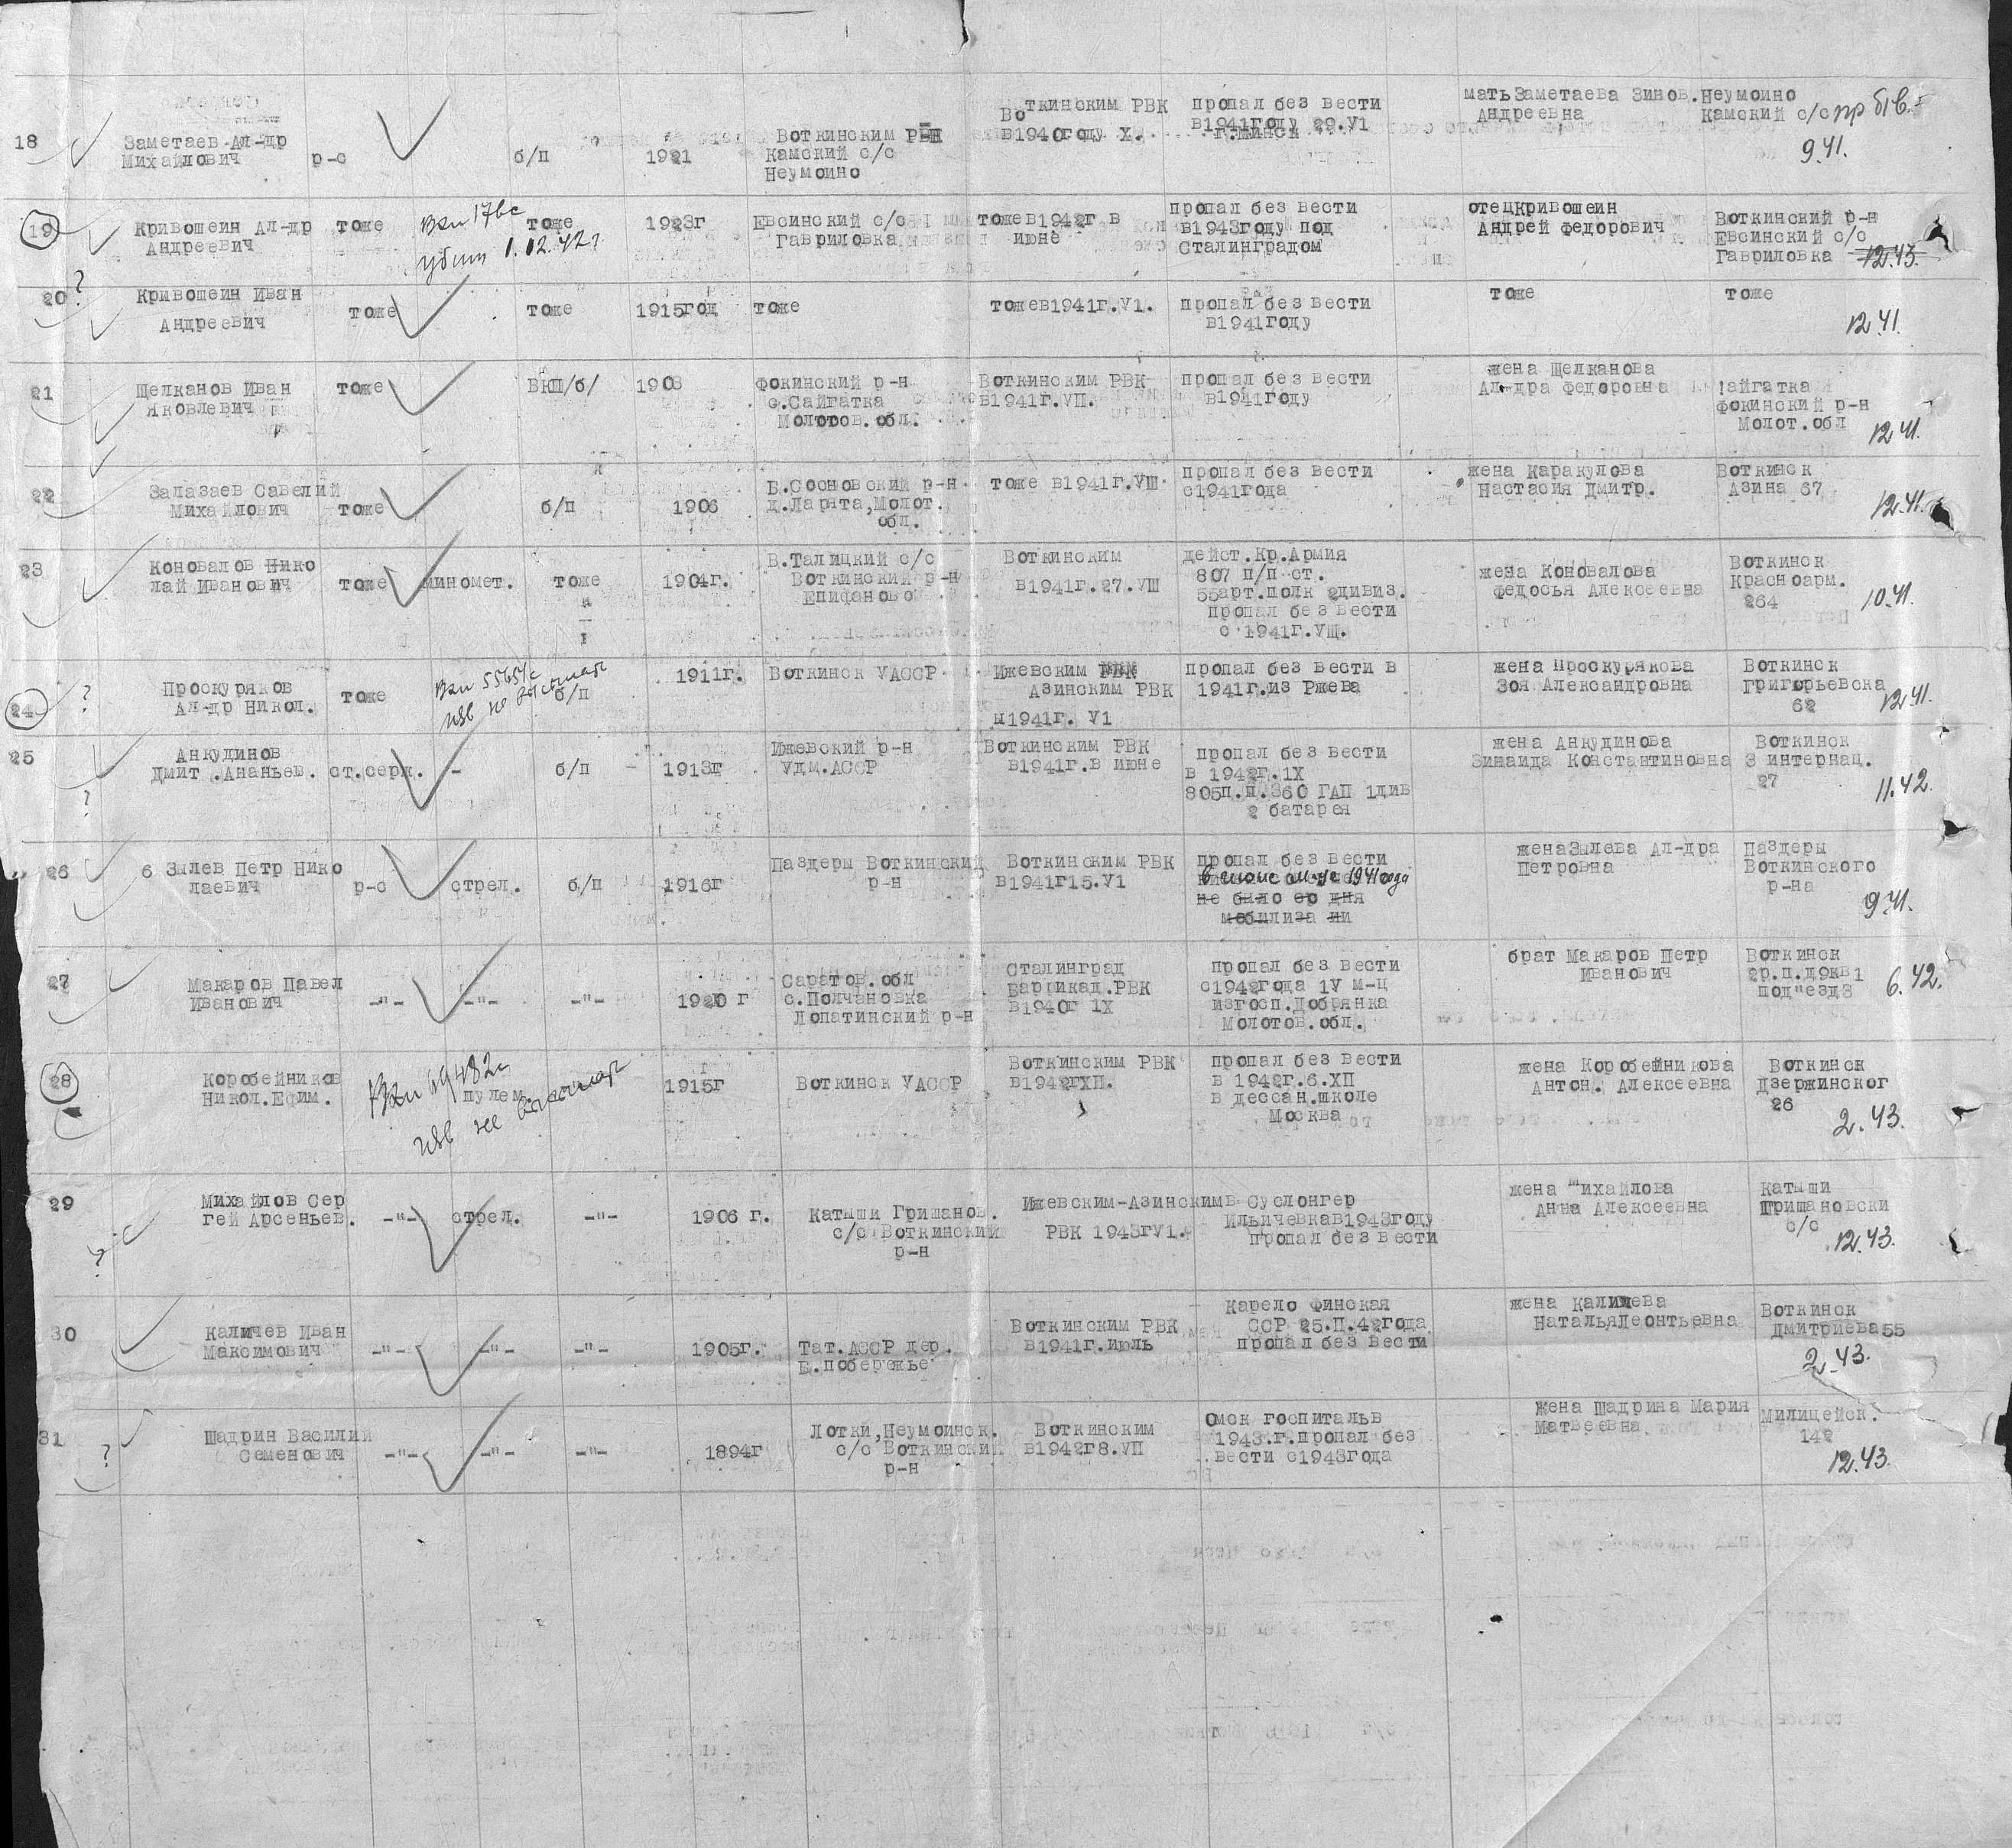 18
Заметаев Ал-др
Михайлович
р-с
б/п
1921
Воткинским РВН
Камский с/с
Неумоино
Воткинским РВК
в1940году X.
пропал без вести
в1941году 29.У1
г.Минск
мать Заметаева Зинов.
Андреевна
Неумоино
Камский с/с
пр б/в.
9.41.
19
Кривошеин Ал-др
Андреевич
тоже
убит 1.02.42г
тоже
1923г
Евсинский с/с
Гавриловка
тоже в1942г в
июне
пропал без вести
в1943году под
Сталинградом
отецКривошеин
Андрей Федорович
Воткинский р-н
Евсинский с/с
Гавриловка
12.43.
20
?
Кривошеин Иван
Андреевич
тоже
тоже
1915год
тоже
тожев1941г.У1.
пропал без вести
в1941году
тоже
тоже
12.41.
21
Щелканов Иван
Яковлевич
тоже
ВКП/б/
1903
Фокинский р-н
с.Сайгатка
Молотов.обл.
Воткинским РВК
в1941г.УП.
пропал без вести
в1941году
жена Щелканова
Ал-дра Федоровна
!айгатка
Фокинский р-н
Молот.обл
12.41.
22
Залазаев Савелий
Михайлович
тоже
б/п
1906
Б.Сосновский р-н
д.Ларята,Молот.
обл.
тоже в1941г.УШ.
пропал без вести
с1941года
жена Каракулова
Настасия Дмитр.
Воткинск
Азина 67
12.41.
23
Коновалов Нико
лай Иванович
тоже
миномет.
тоже
1904г.
В.Талицкий с/с
Воткинский р-н
Епифаново
Воткинским
в1941г.27.УШ
дейст.Кр.Армия
807 п/п ст.
55арт.полк 2дивиз.
пропал без вести
с 1941г.УЩ.
жена Коновалова
Федосья Алексеевна
Воткинск
Красноарм.
264
10.41.
24
?
Проскуряков
Ал-др Никол.
тоже
изв не высылал
б/п
1911г.
Воткинск УАССР
Ижевским РВК
Азинским РВК
в1941г. У1
пропал без вести в
1941г.из Ржева
жена Проскурякова
Зоя Александровна
Воткинск
Григорьевска
62
12.41.
25
?
Анкудинов
Дмит.Ананьев.
ст.серж.
-
б/п
1913г
Ижевский р-н
Удм.АССР
Воткинским РВК
в1941г.в июне
пропал без вести
в 1942г.1Х
805п.п.360 ГАП 1див
2 батарея
жена Анкудинова
Зинаида Константиновна
Воткинск
3 интернац.
27
11.42.
26
6 Зылев Петр Нико
лаевич
р-с
стрел.
б/п
1916г
Паздеры Воткинский
р-н
Воткинским РВК
в1941г15.У1
пропал без вести
в июне м-це 1941года
не было со дня
мобилиза ии
женаЗылева Ал-дра
Петровна
Паздеры
Воткинского
р-на
9.41.
27
Макаров Павел
Иванович
-"-
-"-
-"-
1920 г
Саратов.обл
с.Полчановка
Лопатинский р-н
Сталинград
Баррикад.РВК
в1940г 1Х
пропал без вести
с1942года 1У м-ц
изгосп.Добрянка
Молотов.обл.
брат Макаров Петр
Иванович
Воткинск
2р.п.д9кв1
под"езд3
6.42.
28
Коробейников
Никол.Ефим.
пулем.
изв не высылал
1915г
Воткинск УАССР
Воткинским РВК
в1942гХП.
пропал без вести
в 1942г.6.ХП
в дессан.школе
Москва
жена Коробейникова
Антон. Алексеевна
Воткинск
Дзержинског
26
2.43.
29
?
Михайлов Сер
гей Арсеньев.
-"-
стрел.
-"-
1906 г.
Катыши Гришанов.
с/с Воткинский
р-н
Ижевским-Азинским
РВК 1943гУ1.
в Суслонгер
Ильичевкав1943году
пропал без вести
жена Михайлова
Анна Алексеевна
Катыши
Гришановски
с/с
12.43.
30
Каличев Иван
Максимович
-"-
-"-
-"-
1905г.
Тат.АССР дер.
Б.побережье
Воткинским РВК
в1941г.июль
Карело Финская
ССР 25.П.42года
пропал без вести
жена Каличева
НатальяЛеонтьевна
Воткинск
Дмитриева55
2.43.
31
?
Шадрин Василий
Семенович
-"-
-"-
-"-
1894г
Лотки,Неумоинск.
с/с Воткинский
р-н
Воткинским
в1942г8.УП
Омск госпитальв
1943.г.пропал без
вести с1943года
жена Шадрина Мария
Матвеевна
Милицейск.
142
12.43.